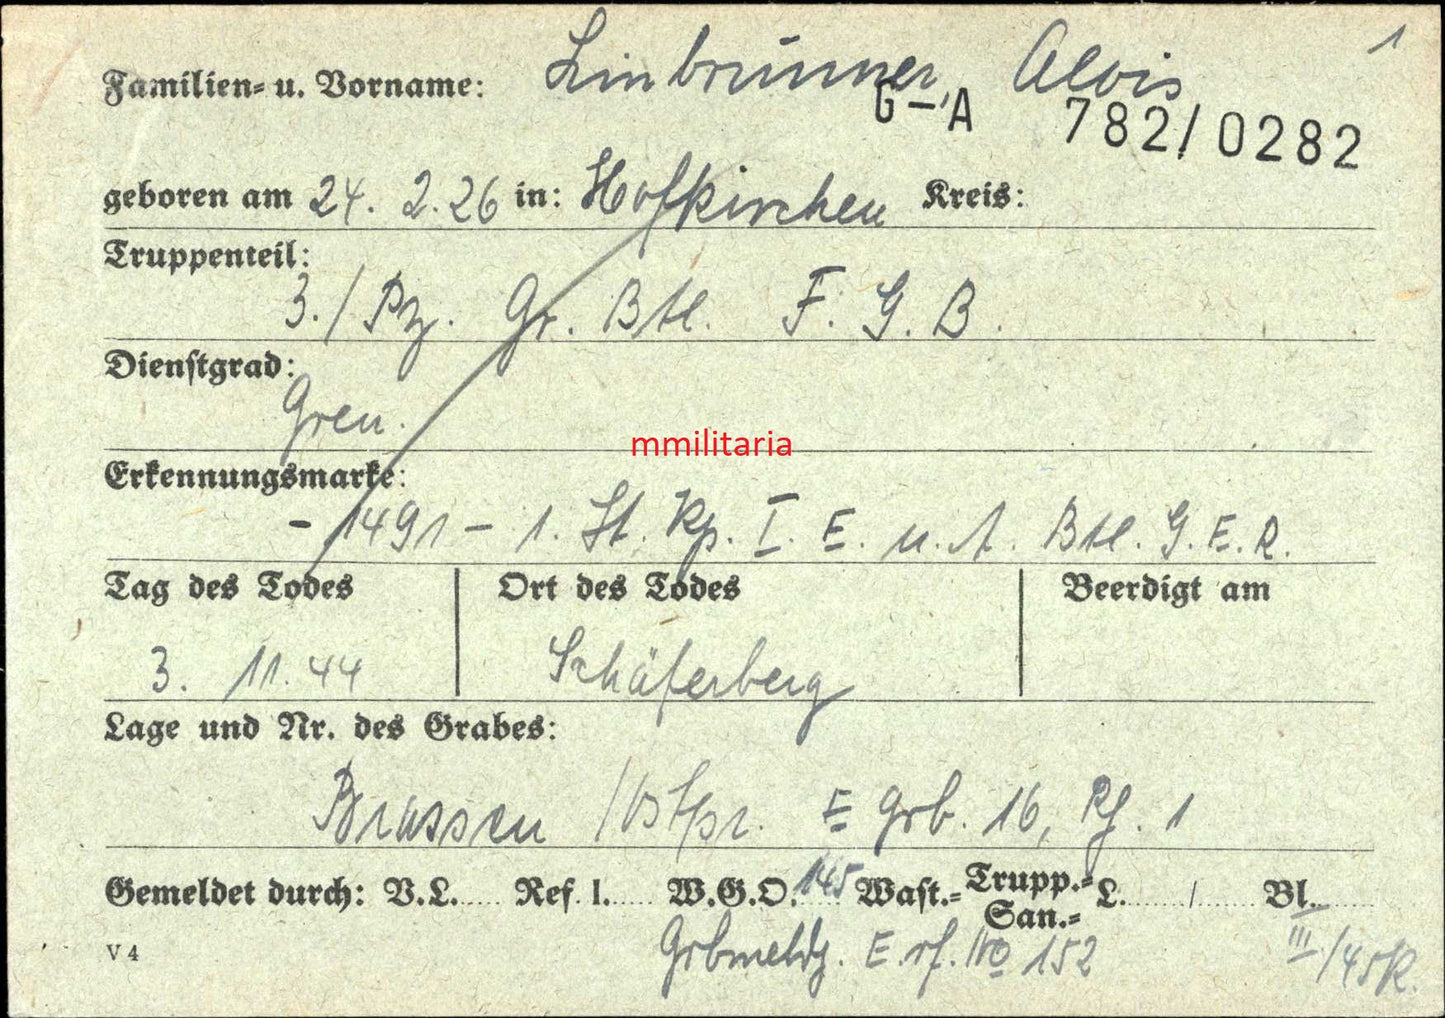 Familien- u. Vorname: Linbrunner, Alois 1
G-A 782/0282
geboren am 24. 2. 26 in: Hofkirchen Kreis:
Truppenteil:
3./Pz. Gr. Btl. F. G. B.
Dienstgrad:
Gren.
mmilitaria
Erkennungsmarke:
- 1491 - 1. St. Kp. I. E. u. A. Btl. G. E. R.
Tag des Todes Ort des Todes Beerdigt am
3. 11. 44 Schäferberg
Lage und Nr. des Grabes:
Brassen /Ostpr. E grb. 16, Rf. 1
Gemeldet durch: V.L..... Ref. l..... W.G.O. 145 Wast.- Trupp.- San.- L......../........ Bl.......
V 4 Grbmeldg. E. rf. WO 152 III/45 K.